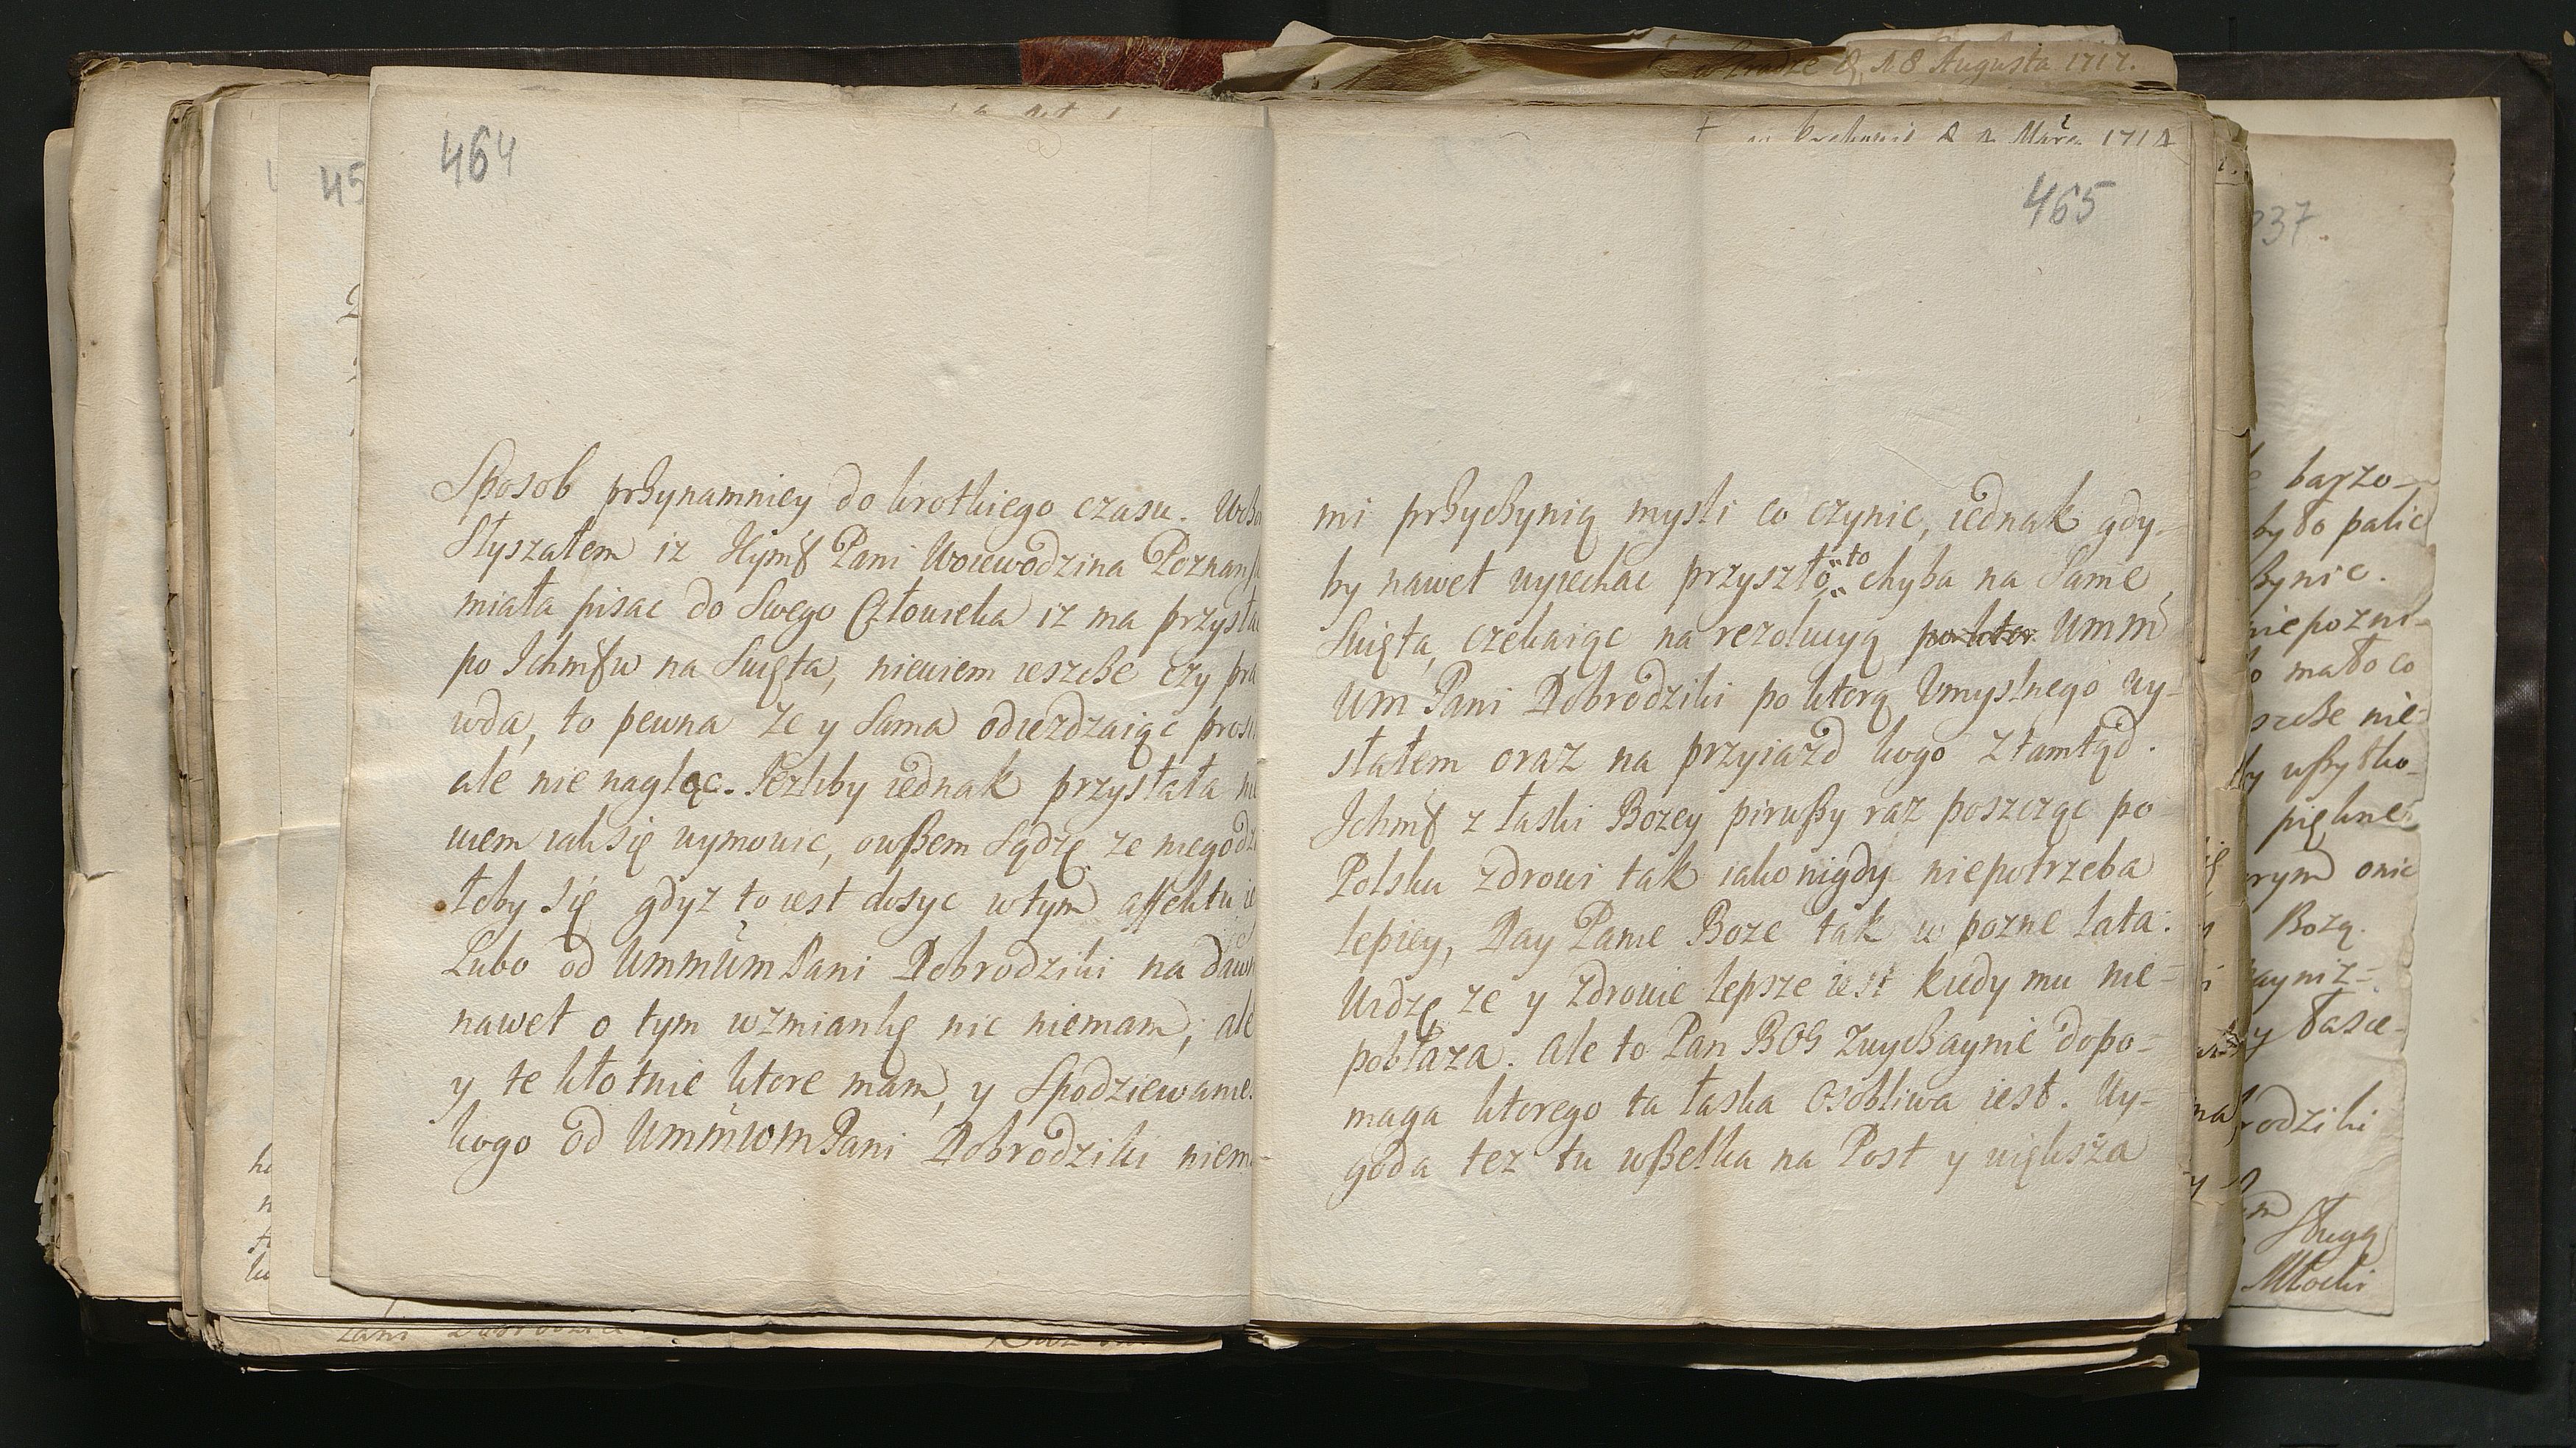 w Pradze d. 18 Augusta 1717.
464
Sposob przynamniey do krotkiego czasu.
Słyszałem iz Jeymſ Pani Woiewodzina Poznanſ
miała pisac do Swego Człowieka iz ma przysła
po Ichmſw na Swięta, niewiem ieszcze czy pra
wda, to pewna ze y Sama odiezdzaiąc prosi
ale nie nagląc. Jezliby iednak przysłała ni
wiem iak się wymowic, owszem Sądzę ze niegodzi
łoby się gdyz to iest dosyc w tym affektu ie
Lubo od Ummum Pani Dobrodziki na dawn
nawet o tym wzmiankę nic niemam; ale
y te kłotnie ktore mam, y Spodziewanie
kogo od Ummwm Pani Dobrodziki niem
465
mi przyczynią mysli co czynic, iednak gdy-
by nawet wyiechac przyszło to chyba na Same
Swięta, czekaiąc na rezolucyą Umm
Um Pani Dobrodziki po ktorą Umyslnego wy-
słałem oraz na przyiazd kogo ztamtąd.
Ichmſ z łaski Bozey pirwszy raz poszcząc po
Polsku zdrowi tak iako nigdy niepotrzeba
lepiey, Day Panie Boze tak w pozne lata:
Widzę ze y zdrowie lepsze iest kiedy mu nie-
pobłaza. Ale to Pan BOG Zwyczaynie dopo-
maga ktorego ta łaska Osobliwa iest. Wy-
goda tez tu wszelka na Post y więksża
37.
barzo-
było palic
czynic.
niepozni-
mało co
szcze nie-
by wszytko-
piękney
orym onic
Bozą.
y łasce-
rodziki
Sługą
Młocki